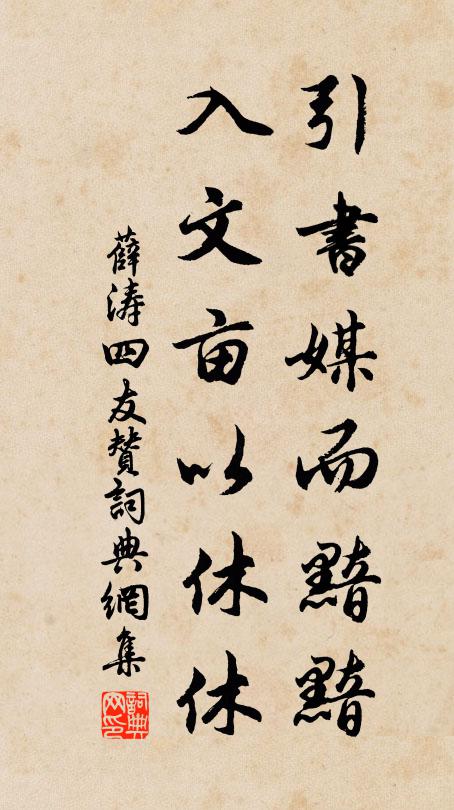 引書媒而黯黯
入文亩以休休
薛涛四友贊詞典網集
詞典网印